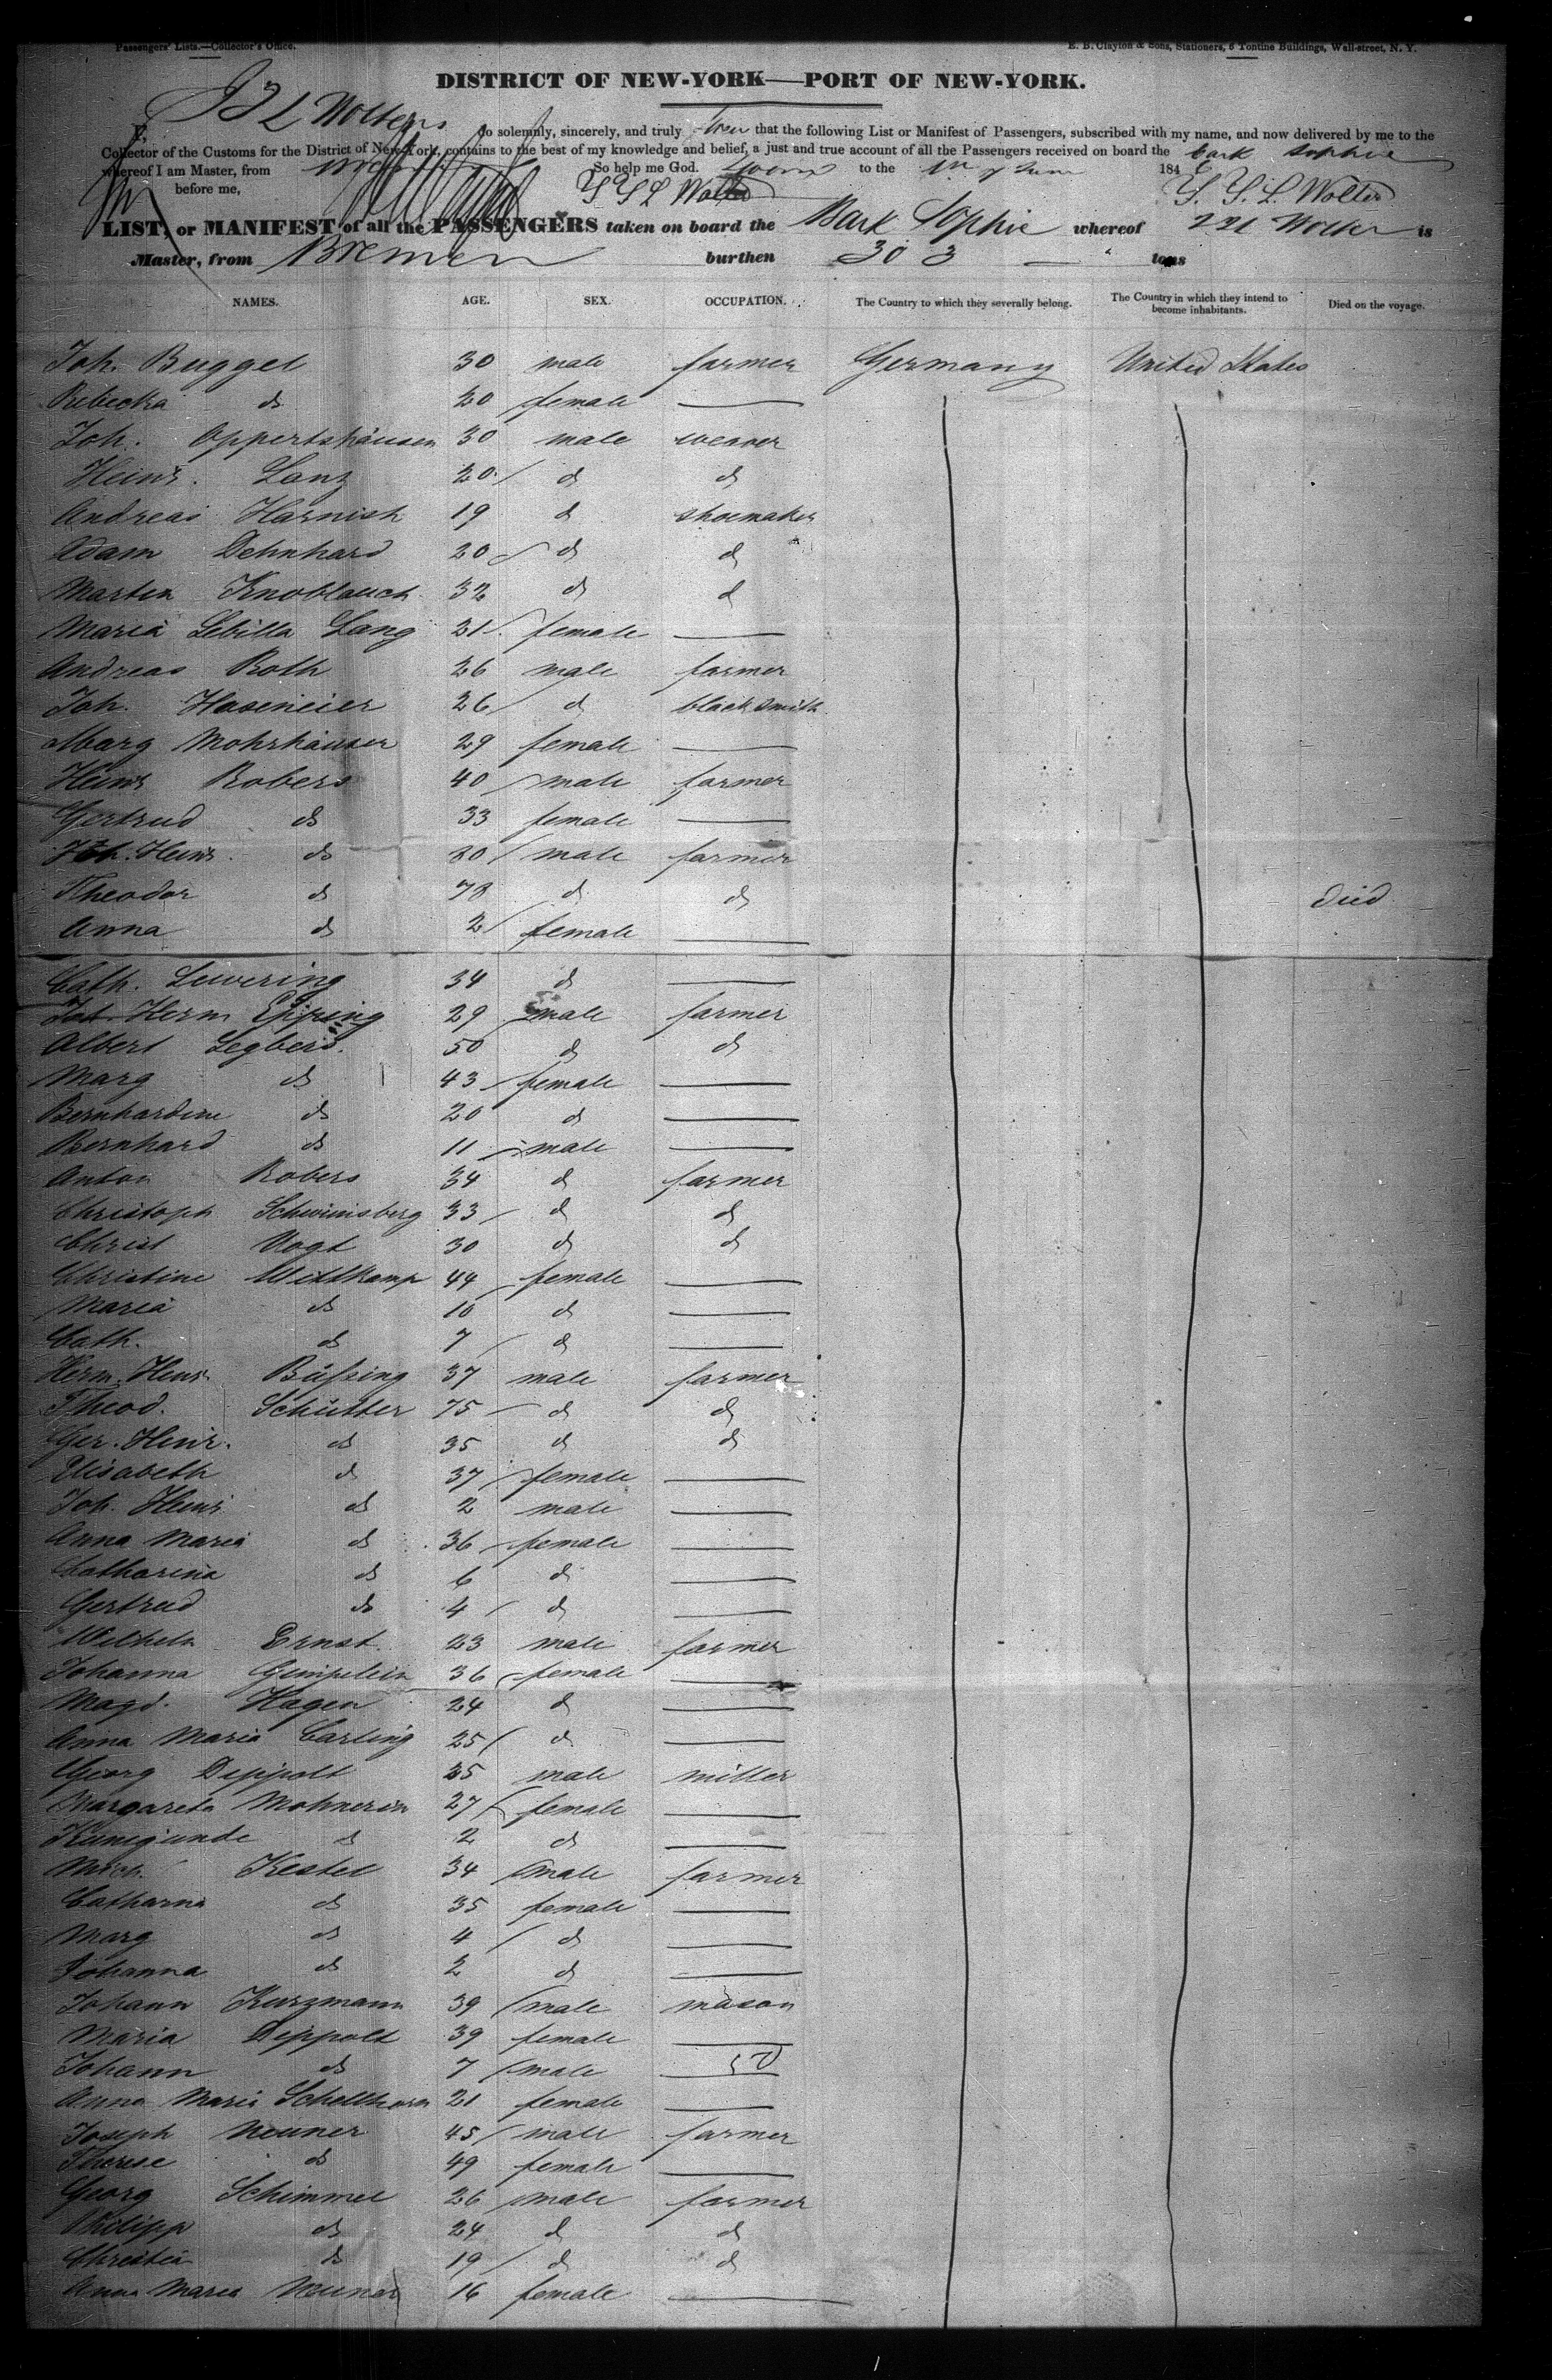 Passengers' Lists.—Collector's Office. E. B. Clayton & Sons, Stationers, 6 Tontine Buildings, Wall-street, N. Y.
DISTRICT OF NEW-YORK—PORT OF NEW-YORK.
I, Wolters do solemnly, sincerely, and truly that the following List or Manifest of Passengers, subscribed with my name, and now delivered by me to the
Collector of the Customs for the District of New-York, contains to the best of my knowledge and belief, a just and true account of all the Passengers received on board the bark Sophie
whereof I am Master, from So help me God. to the 184
before me, Wolters Wolters
LIST, or MANIFEST of all the PASSENGERS taken on board the Bark Sophie whereof Wolter is
Master, from Bremen burthen 303 tons
NAMES. AGE. SEX. OCCUPATION. The Country to which they severally belong. The Country in which they intend to become inhabitants. Died on the voyage.
Joh. Buggel 30 male farmer Germany United States
Rebecka do 20 female —
Joh. Oppertshäusen 30 male weaver
Heinr. Lanz 20 d d
Andreas Harnish 19 d shoemaker
Adam Dehnhard 20 d d
Martin Knoblauch 32 d d
Maria Sebilla Lang 21 female —
Andreas Roth 26 male farmer
Joh. Hasemeier 26 d blacksmith
Marg Mohrhäuser 29 female —
Heinr Robers 40 male farmer
Gertrud do 33 female —
Joh. Heinr. do 30 male farmer
Theodor do 78 d d died
Anna do 2 female —
Cath. Lewering 34 d —
Joh. Herm Epping 29 male farmer
Albert Segbers. 50 d d
Marg do 43 female —
Bernhardine do 20 d —
Bernhard do 11 male —
Anton Robers 34 d farmer
Christoph Schwinsberg 33 d d
Christ Vogt 30 d d
Christine Wittkamp 44 female —
Maria do 10 d —
Cath. do 7 d —
Herm. Heinr. Büssing 37 male farmer
Theod. Schütter 75 d d
Ger. Heinr. do 35 d d
Elisabeth do 37 female —
Joh. Heinr do 2 male —
Anna Maria do 36 female —
Catharina do 6 d —
Gertrud do 4 d —
Wilhelm Ernst 23 male farmer
Johanna Gimpelein 36 female —
Magd. Hagen 24 d —
Anna Maria Carling 25 d —
Georg Deppolt 25 male miller
Margareta Mohnerin 27 female —
Kunigunde d 2 d —
Mich. Kestel 34 male farmer
Catharna do 35 female —
Marg do 4 d —
Johanna do 2 d —
Johann Kurzmann 39 male mason
Maria Deppolt 39 female —
Johann do 7 male — 50
Anna Maria Schellhorn 21 female —
Joseph Neuner 45 male farmer
Therese do 49 female —
Georg Schimmel 26 male farmer
Philipp do 24 d d
Christia do 19 d d
Anna Maria Neuner 16 female —